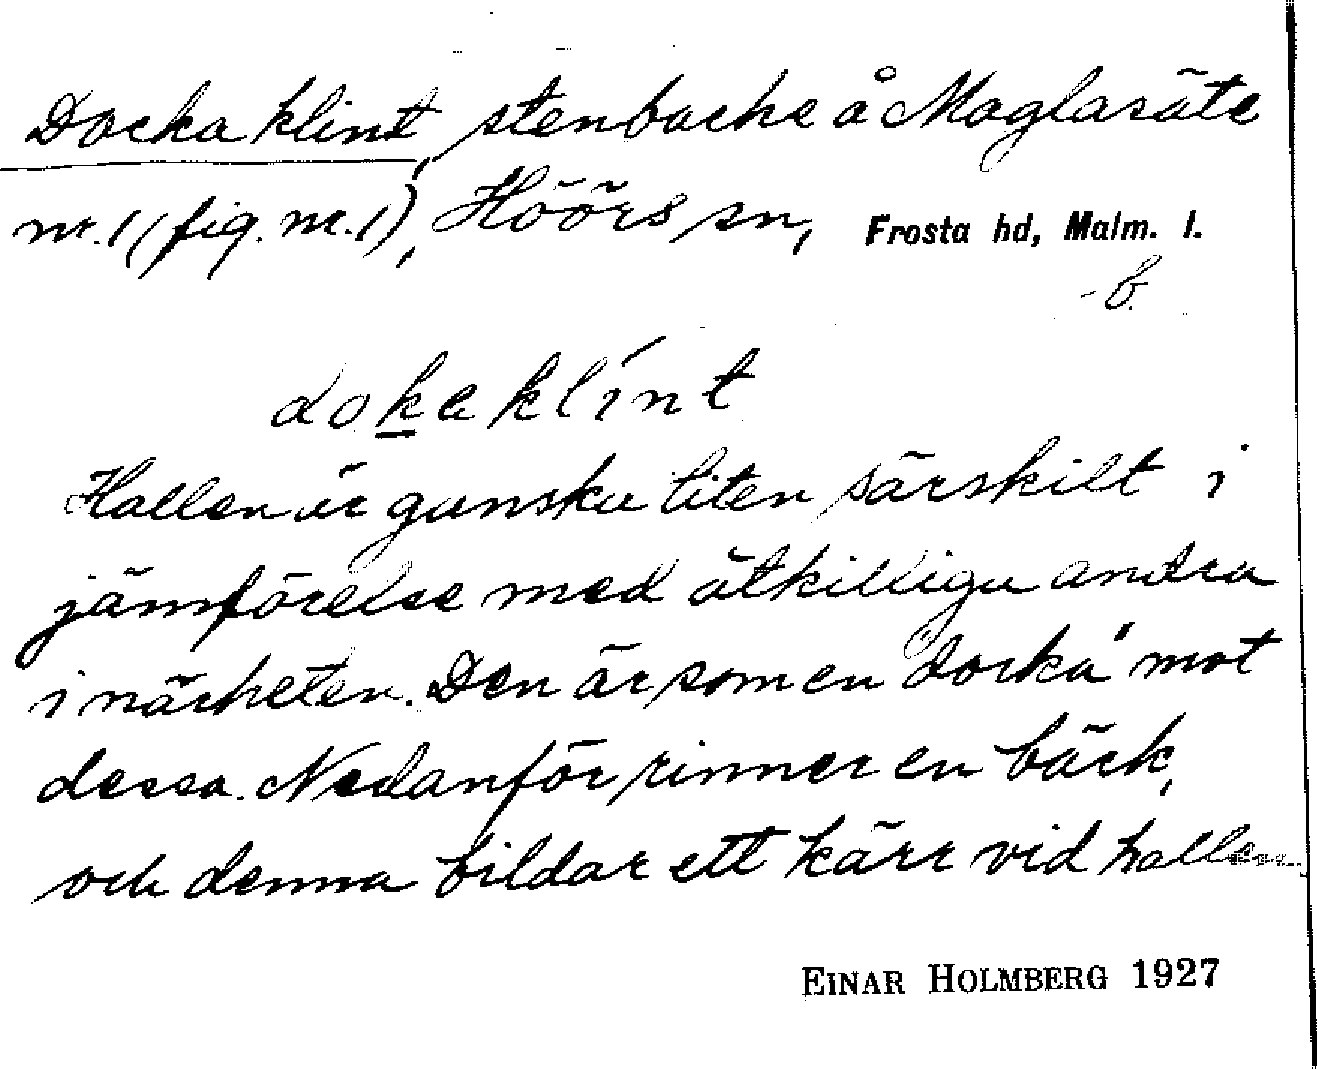 Docka klint, stenbacke å Maglasäte
nr. 1 (fig. nr. 1), Höörs sn, Frosta hd, Malm. l.
-b.
dokaklínt
Hallen är ganska liten särskilt i
jämförelse med åtkilliga andra
i närheten. Den är som en docka" mot
dessa. Nedanför rinner en bäck,
och denna bildar ett kärr vid hallen.
EINAR HOLMBERG 1927